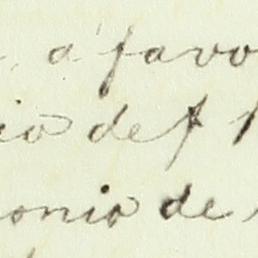 a favo
io de f
onio de